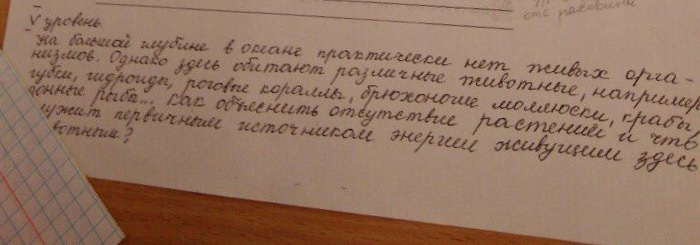 отс раковиной
V уровень
На большой глубине в океане практически нет живых орга-
низмов. Однако здесь обитают различные животные, например
губки, гидроиды, роговые кораллы, брюхоногие моллюски, крабы,
донные рыбы... Как объяснить отсутствие растений и что
служит первичным источником энергии живущим здесь
животным?